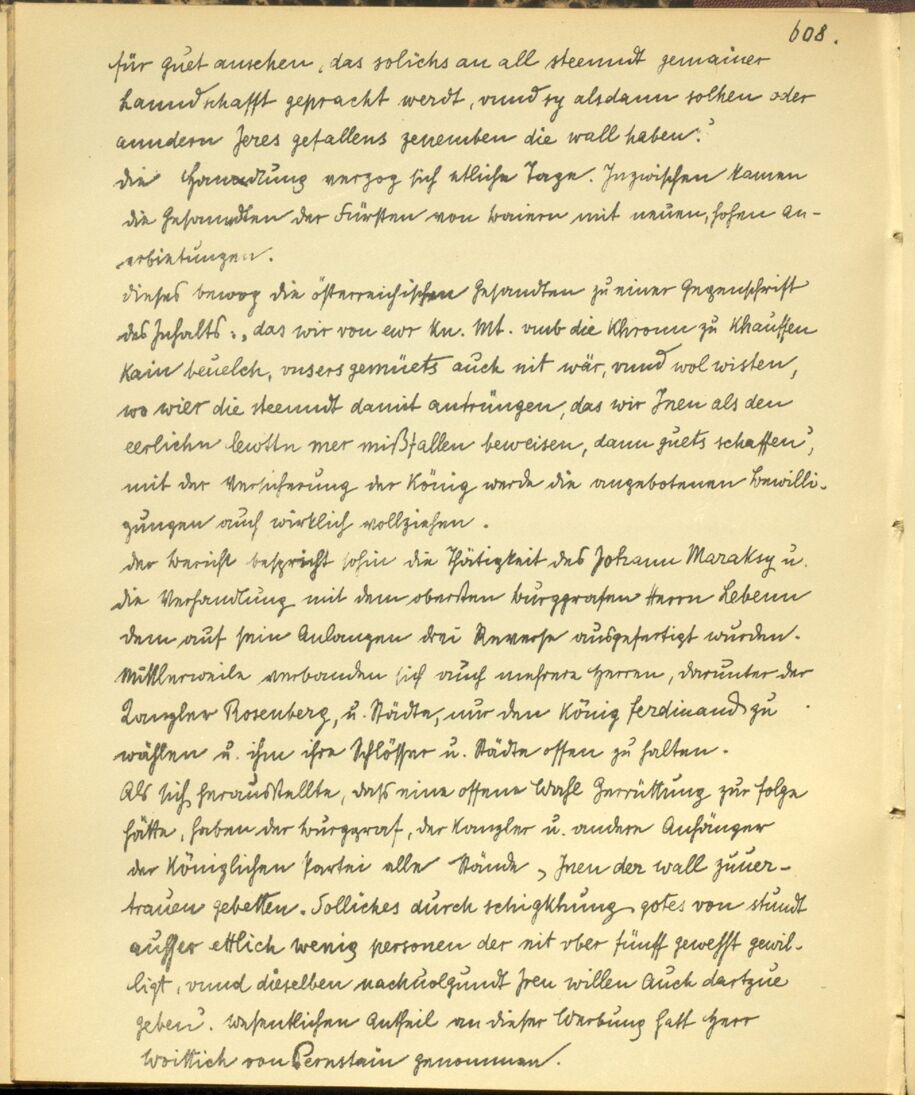 608.
für guet ansehen, das solichs an all steenndt gemainer
Lanndschafft gepracht werdt, vnnd sy alsdann solhen oder
anndern Jeres gefallens zenemben die wall haben.“
Die Handlung verzog sich etliche Tage. Inzwischen kamen
die Gesandten der Fürsten von Baiern mit neuen, hohen An-
erbietungen.
Dieses bewog die österreichischen Gesandten zu einer Gegenschrift
des Inhalts: „das wir von ewr kn. Mt. vmb die Khronn zu khauffen
kain beuelch, vnsers gemüets auch nit wär, vnnd wol wisten,
wo wier die steenndt damit antrüngen, das wir Jnen als den
eerlichn lewttn mer mißfallen beweisen, dann guets schaffen“,
mit der Versicherung der König werde die angebotenen Bewilli-
gungen auch wirklich vollziehen.
Der Bericht bespricht sohin die Thätigkeit des Johann Maraksy u.
die Verhandlung mit dem obersten Burggrafen Herrn Lebenn
dem auf sein Anlangen drei Reverse ausgefertigt wurden.
Mittlerweile verbanden sich auch mehrere Herren, darunter der
Kanzler Rosenberg, u. Städte, nur den König Ferdinand zu
wählen u. ihm ihre Schlösser u. Städte offen zu halten.
Als sich herausstellte, daß eine offene Wahl Zerrüttung zur Folge
hätte, haben der Burggraf, der Kanzler u. andere Anhänger
der Königlichen Partei alle Stände „Jnen der wall zuuer-
trauen gebetten. Solliches durch schigkhung gotes von stundt
ausser ettlich wenig personen der nit vber fünff gewesst gewil-
ligt, vnnd dieselben nachuolgundt Jren willen Auch dartzue
geben“. Wesentlichen Antheil an dieser Werbung hatt Herr
Woittich von Pernstain genommen.